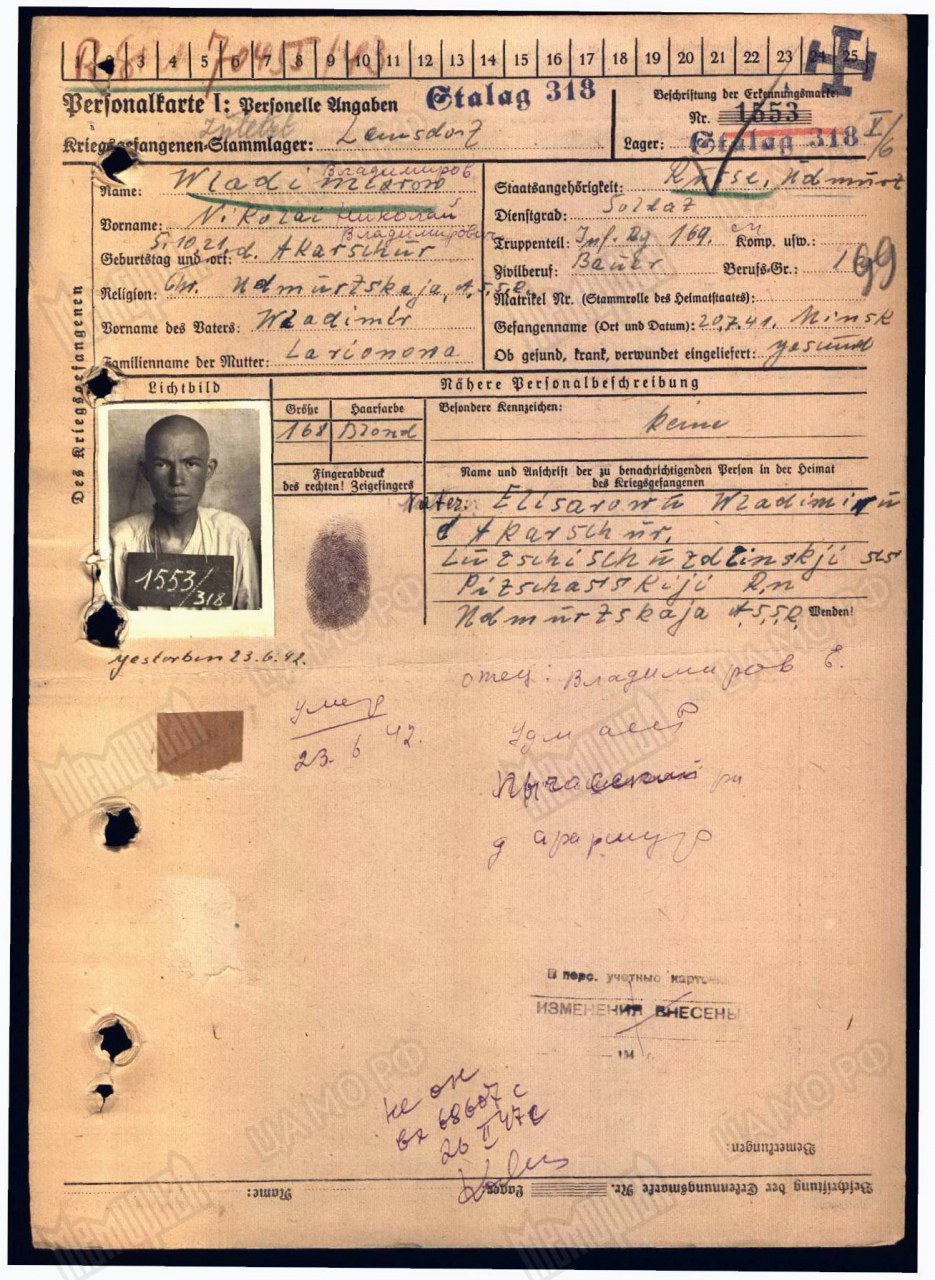 1 2 3 4 5 6 7 8 9 10 11 12 13 14 15 16 17 18 19 20 21 22 23 24 25
Personalkarte I: Personelle Angaben
Stalag 318
Beschriftung der Erkennungsmarke
Nr. 1553
Kriegsgefangenen-Stammlager: Lamsdorf
Lager: Stalag 318
Des Kriegsgefangenen
Владимиров
Name: Wladimiarow
Николай
Vorname: Nikolai
Владимирович
Geburtstag und -ort: 5.10.21. d. Akarschur
Religion: Chr. Udmurtskaja, A.S.S.R.
Vorname des Vaters: Wladimir
Familienname der Mutter: Larionowa
Staatsangehörigkeit: Russe, Udmurt
Dienstgrad: Soldat
Truppenteil: Inf. Rg 169. Komp. usw.:
Zivilberuf: Bauer Berufs-Gr.: 199
Matrikel Nr. (Stammrolle des Heimatstaates):
Gefangenname (Ort und Datum): 20.7.41. Minsk
Ob gesund, krank, verwundet eingeliefert: gesund
Lichtbild
Nähere Personalbeschreibung
Größe Haarfarbe
168 Blond
Besondere Kennzeichen:
keine
1553/
/318
Fingerabdruck
des rechten! Zeigefingers
Name und Anschrift der zu benachrichtigenden Person in der Heimat
des Kriegsgefangenen
Vater: Elisarowu Wladimiru
d Akarschur,
Pitschasskiji R,n
Udmurtskaja A,S,S,R. Wenden!
gestorben 23.6.42.
умер
23. 6 42.
отец: Владимиров Е.
Пычасский рн
В перс. учетную карточку
ИЗМЕНЕНИЯ ВНЕСЕНЫ
194 г.
не он
вх 68607 с
26 II 47г
Bemerkungen:
Name:
Lager:
Beschriftung der Erkennungsmarke Nr.
МЕМОРИАЛ
ЦАМО РФ